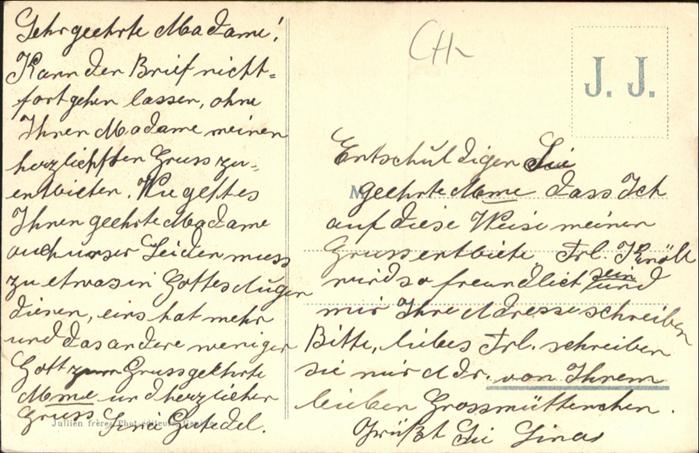 Sehr geehrte Madame!
Kann den Brief nicht-
fortgehen lassen, ohne
Ihnen Madame meinen
herzlichsten Gruss zu-
entbieten. Wie geht es
Ihnen geehrte Madame
auch unser Leiden muss
zu etwas in Gottes Augen
dienen, eins hat mehr
und das andere weniger
Gott zum Gruss geehrte
Mme und herzlicher
Gruss
Jullien frères, Phot.-éditeurs
CH-
J. J.
Entschuldigen Sie
geehrte Mme dass Ich
auf diese Weise meinen
Gruss entbiete. Frl. Knöll
wird so freundlich sein und
mir Ihre Adresse schreiben
Bitte, liebes Frl. schreiben
sie mir Adr. von Ihrem
lieben Grossmütterchen.
Grüßt Sie Lina